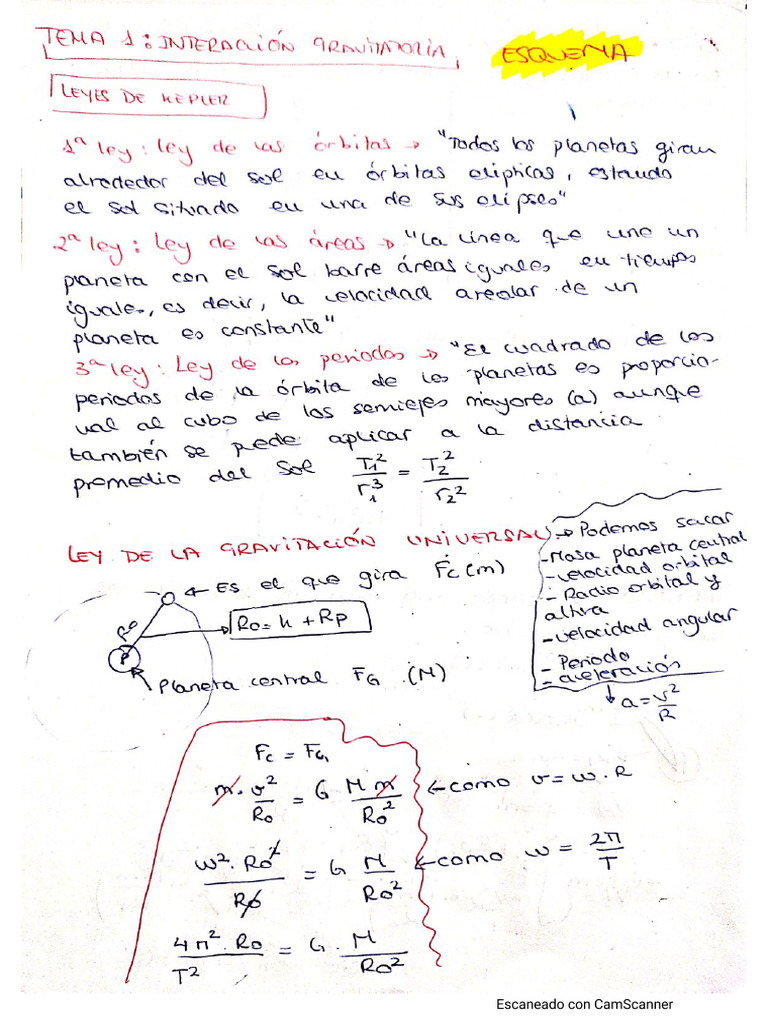 TEMA 1: INTERACCIÓN GRAVITATORIA, ESQUEMA
LEYES DE KEPLER
1ª ley: ley de las órbitas → "Todos los planetas giran
alrededor del sol en órbitas elípticas, estando
el sol situado en una de sus elipses"
2ª ley: Ley de las áreas → "La línea que une un
planeta con el sol barre áreas iguales en tiempos
iguales, es decir, la velocidad areolar de un
planeta es constante"
3ª ley: Ley de los periodos → "El cuadrado de los
periodos de la órbita de los planetas es proporcio-
nal al cubo de los semiejes mayores (a) aunque
también se puede aplicar a la distancia
promedio del sol T₁²/r₁³ = T₂²/r₂²
LEY DE LA GRAVITACIÓN UNIVERSAL → Podemos sacar
- Masa planeta central
- velocidad orbital
- Radio orbital y
altura
- velocidad angular
- Periodo
- aceleración
↓ a = v²/R
← Es el que gira Fc (m)
Ro
Ro = h + Rp
P
Planeta central FG (M)
Fc = FG
m · v²/Ro = G M m/Ro² ← como v = w · R
w² · Ro²/Ro = G M/Ro² ← como w = 2π/T
4π² · Ro/T² = G · M/Ro²
Escaneado con CamScanner